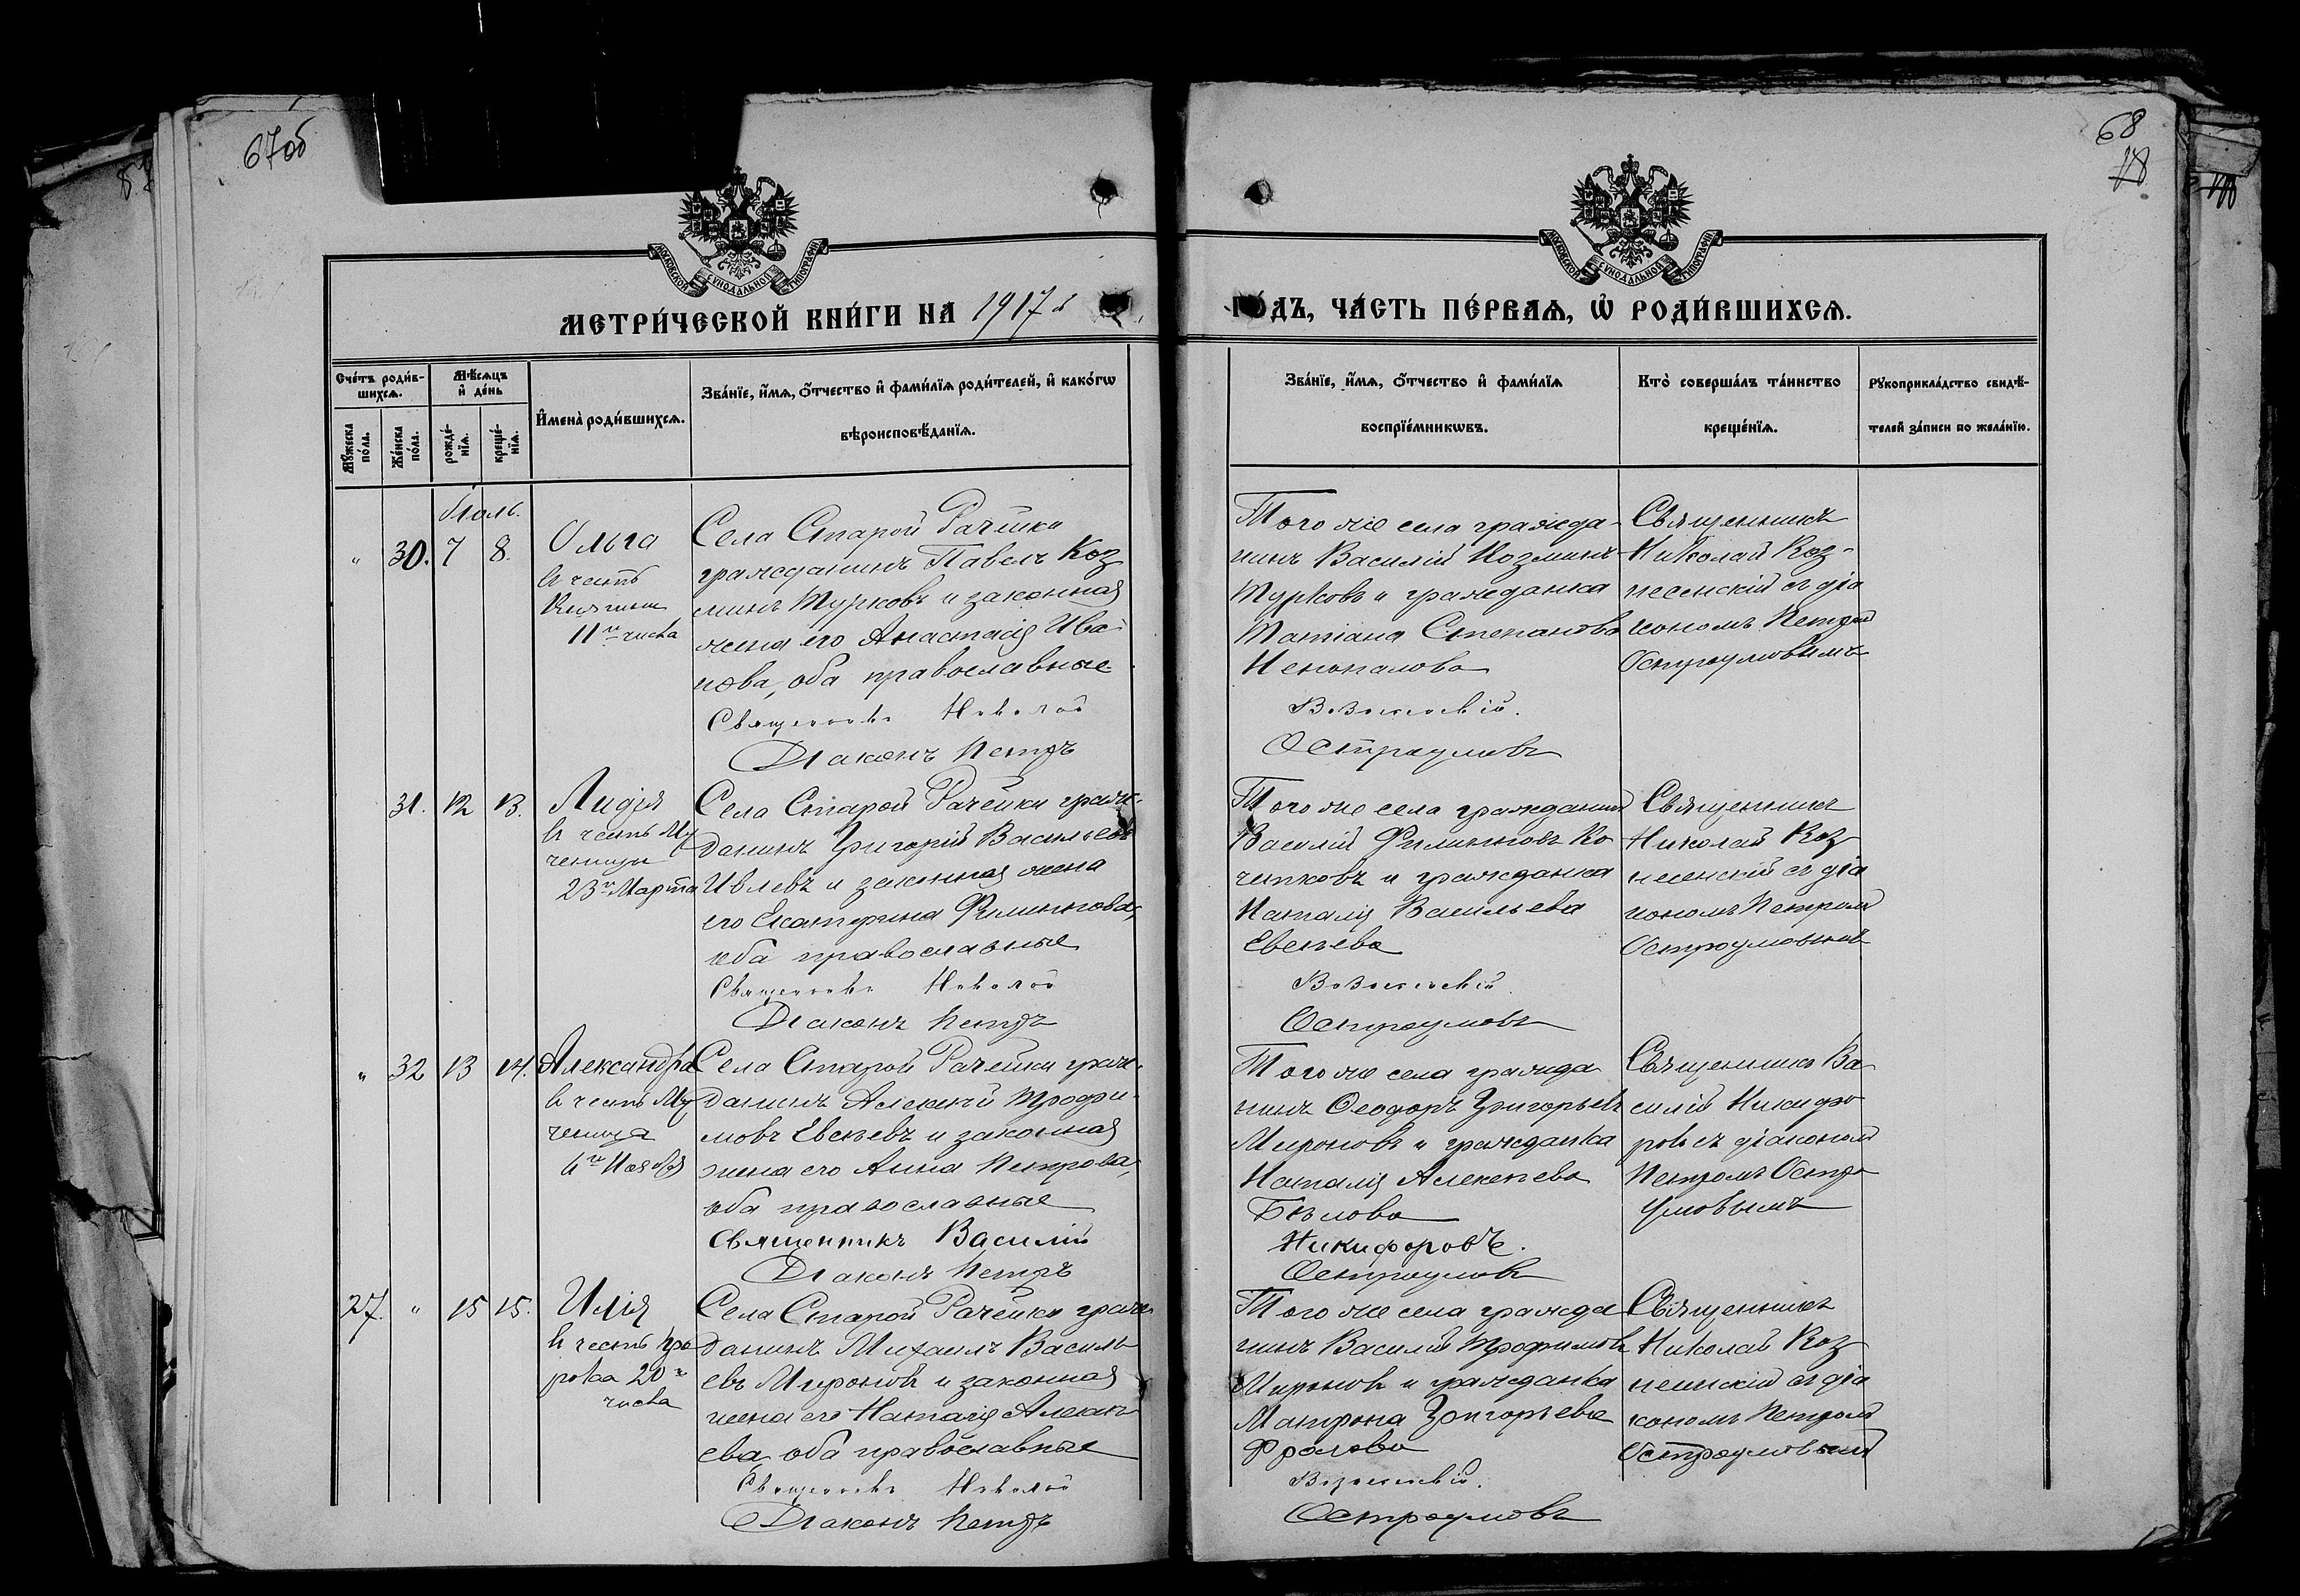 67об
68
18
МОСКОВСКОЙ СУНОДАЛЬНОЙ ТИПОГРАФІИ
МОСКОВСКОЙ СУНОДАЛЬНОЙ ТИПОГРАФІИ
МЕТРИ́ЧЕСКОЙ КНИ́ГИ НА 1917 г
ГО́ДЪ, ЧА́СТЬ ПЕ́РВАѦ, Ѽ РОДИ́ВШИХСѦ.
Сче́тъ роди́в-
шихсѧ.
Мѣ́сѧцъ
и҆ де́нь
И҆мена̀ роди́вшихсѧ.
Зва́нїе, и҆́мѧ, ѻ҆́тчество и҆ фами́лїѧ роди́телей, и҆ како́гѡ
вѣроисповѣ́данїѧ.
Мꙋ́жеска
по́ла.
Же́нска
по́ла.
рожде́-
нїѧ.
креще́-
нїѧ.
Зва́нїе, и҆́мѧ, ѻ҆́тчество и҆ фами́лїѧ
воспрїе́мникѡвъ.
Кто̀ соверша́лъ та́инство
креще́нїѧ.
Рꙋкоприкла́дство свидѣ́-
телей за́писи по жела́нїю.
Іюль.
" 30. 7 8.
Ольга
въ честь
Княгини
11го числа
Села Старой Рачейки
гражданинъ Павелъ Коз
минъ Турковъ и законная
жена его Анастасія Ива-
нова, оба православные
Священникъ Николай
Діаконъ Петръ
Того же села гражда-
нинъ Василій Козминъ
Турковъ и гражданка
Татіана Степанова
Непопалова
Вознесенскій.
Остроумовъ
Священникъ
Николай Воз-
несенскій съ діа
кономъ Петромъ
Остроумовымъ
31. 12 13.
Лидія
въ честь Му
ченицы
23го Марта
Села Старой Рачейки граж-
данинъ Григорій Васильевъ
Ивлевъ и законная жена
его Екатерина Филиппова,
оба православные
Священникъ Николай
Діаконъ Петръ
Того же села гражданинъ
Василій Филипповъ Ко
четковъ и гражданка
Наталія Васильева
Евсѣева
Вознесенскій.
Остроумовъ
Священникъ
Николай Воз
несенскій съ діа
кономъ Петромъ
Остроумовымъ
" 32 13 14.
Александра
въ честь Му
ченица
6го Ноября
Села Старой Рачейки граж-
данинъ Алексѣй Трофи-
мовъ Евсѣевъ и законная
жена его Анна Петрова,
оба православные
Священникъ Василій
Діаконъ Петръ
Того же села гражда
нинъ Ѳеодоръ Григорьевъ
Мироновъ и гражданка
Наталія Алексѣева
Бѣлова
Никифоровъ.
Остроумовъ
Священникъ Ва
силій Никифо
ровъ съ діакономъ
Петромъ Остро
умовымъ
27. " 15 15.
Илія
въ честь Про
рока 20го
числа
Села Старой Рачейки граж
данинъ Михаилъ Василь
евъ Мироновъ и законная
жена его Наталія Алексѣ
ева, оба православные
Священникъ Николай
Діаконъ Петръ
Того же села гражда
нинъ Василій Трофимовъ
Мироновъ и гражданка
Матрона Григорьева
Фролова
Вознесенскій.
Остроумовъ
Священникъ
Николай Воз
несенскій съ діа
кономъ Петромъ
Остроумовымъ